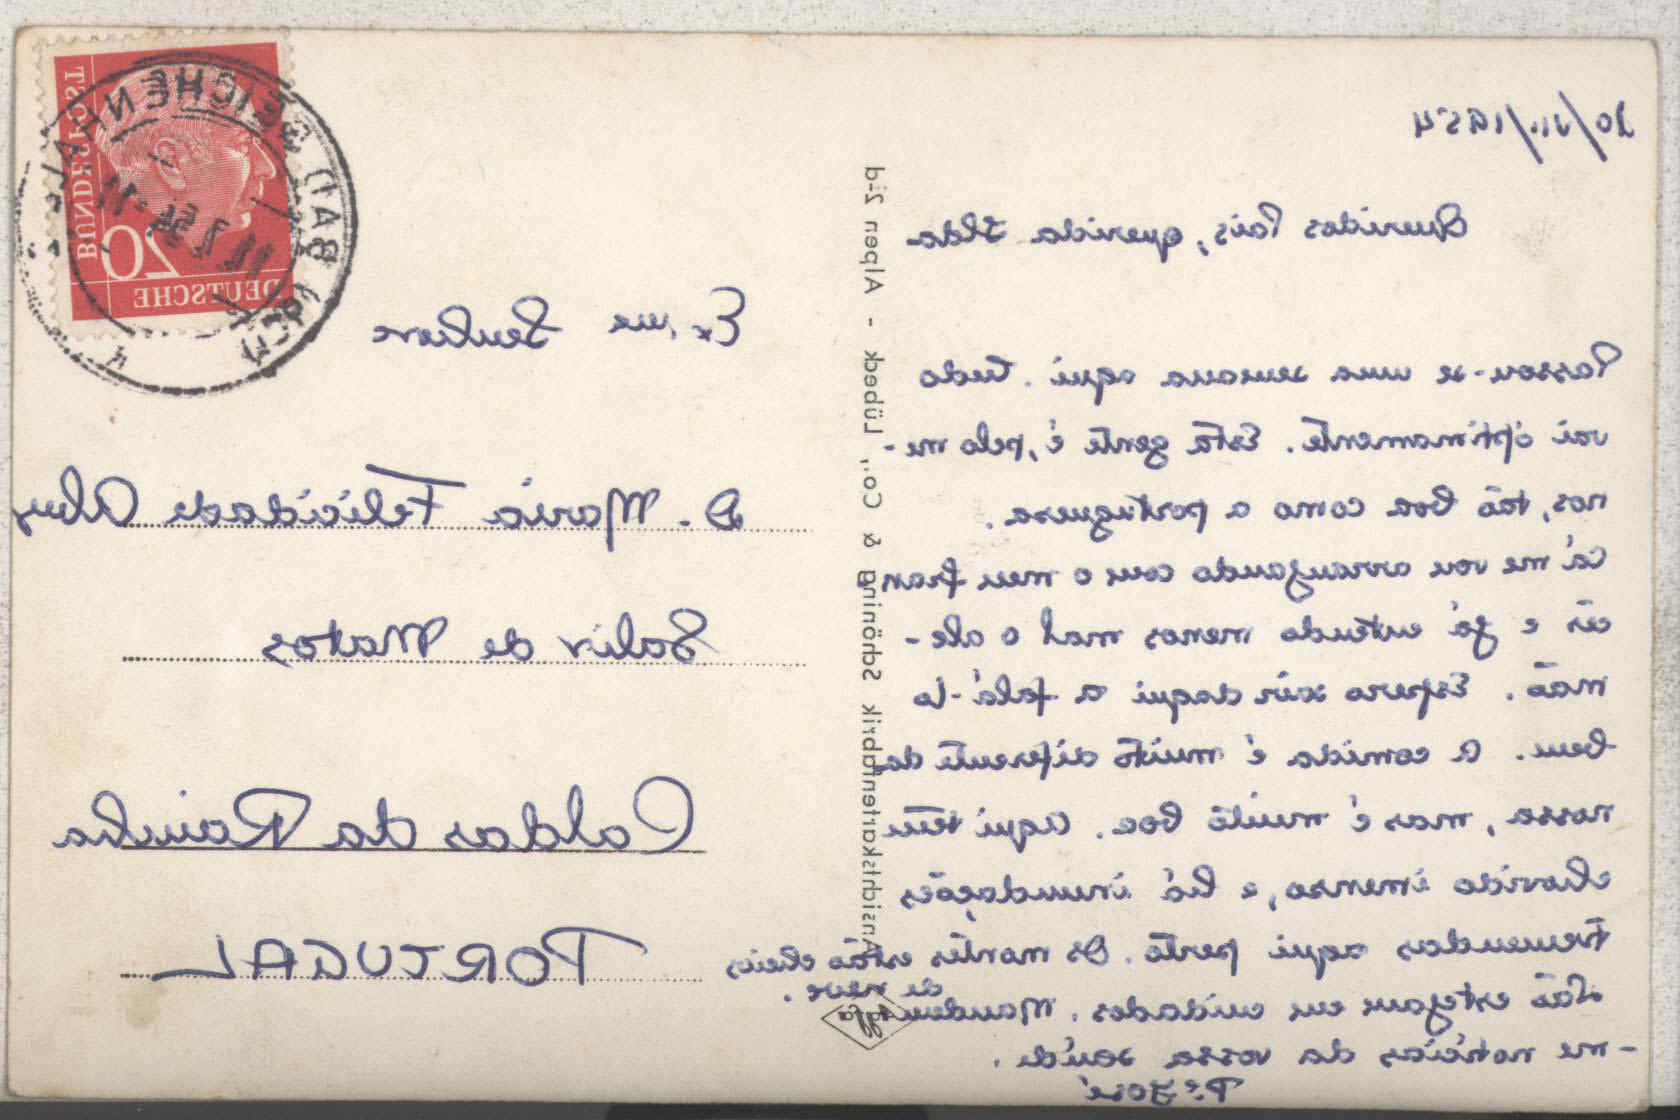 10/VII/1954
Queridos Pais, querida Ilda
Passou-se uma semana aqui. Tudo
vai óptimamente. Esta gente é, pelo me-
nos, tão boa como a portuguesa.
Cá me vou arranjando com o meu fran
cês e já entendo menos mal o ale-
mão. Espero sair daqui a falá-lo
bem. A comida é muito diferente da
nossa, mas é muito boa. Aqui tem
chovido imenso, e há inundações
tremendas aqui perto. Os montes estão cheios
de neve.
Não estejam em cuidados. Mandem
-me notícias da vossa saúde.
Pe. José
Ansichtskartenfabrik Schöning & Co., Lübeck - Alpen 2/d
Agfa
DEUTSCHE
BUNDESPOST
20
BAD REICHENHALL
Exma Senhora
D. Maria Felicidade Alves
Salir de Matos
Caldas da Rainha
PORTUGAL